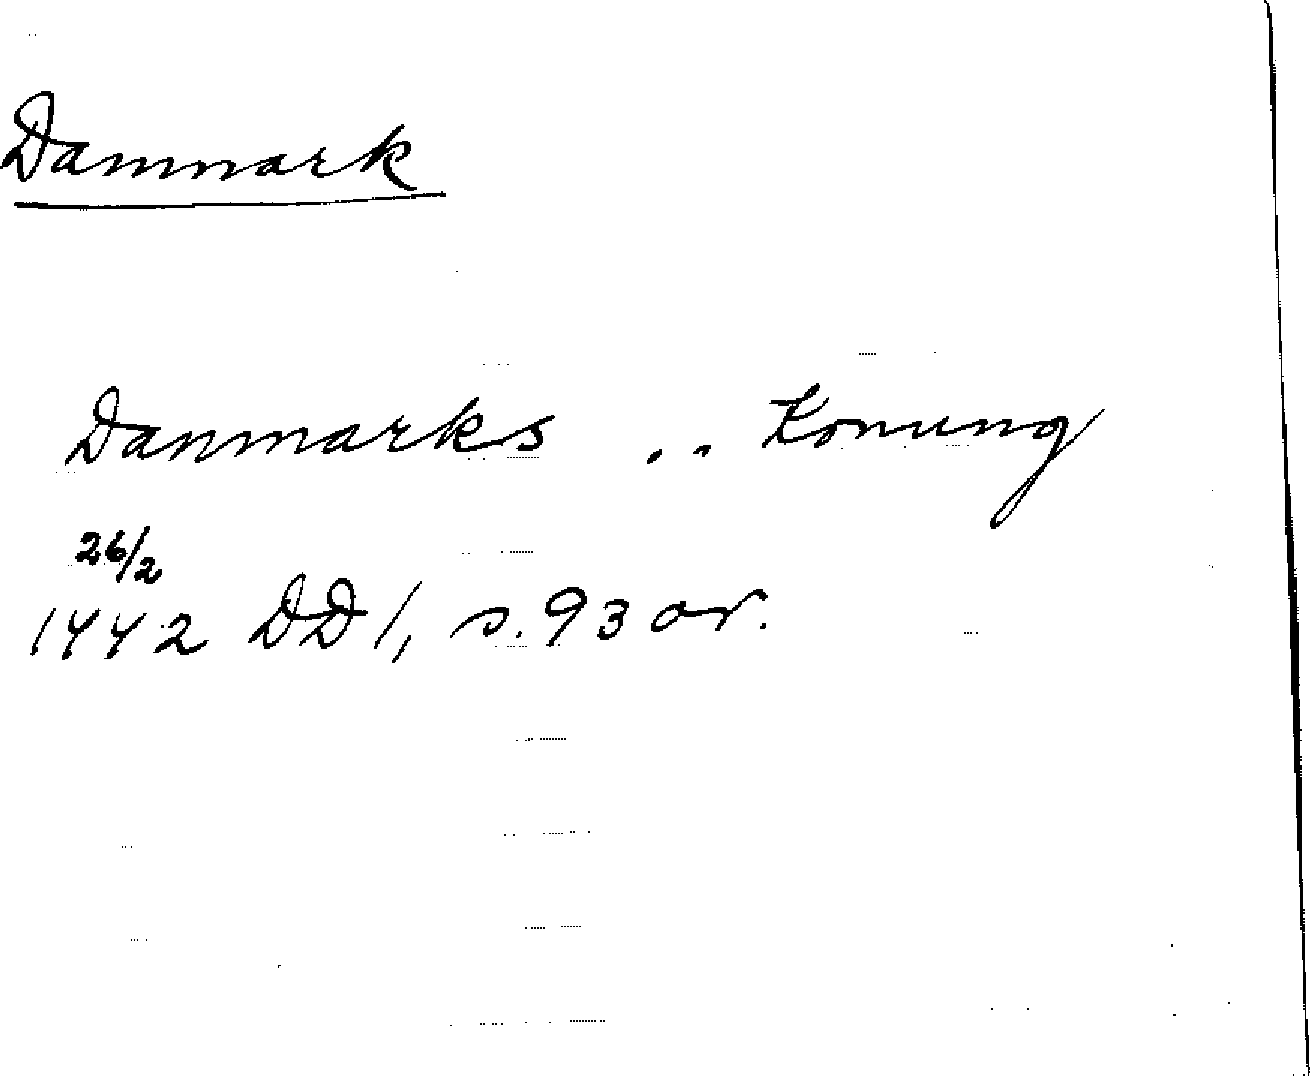 Danmark
Danmarks .. Konung
26/2
1442 DD 1, s. 93 or.